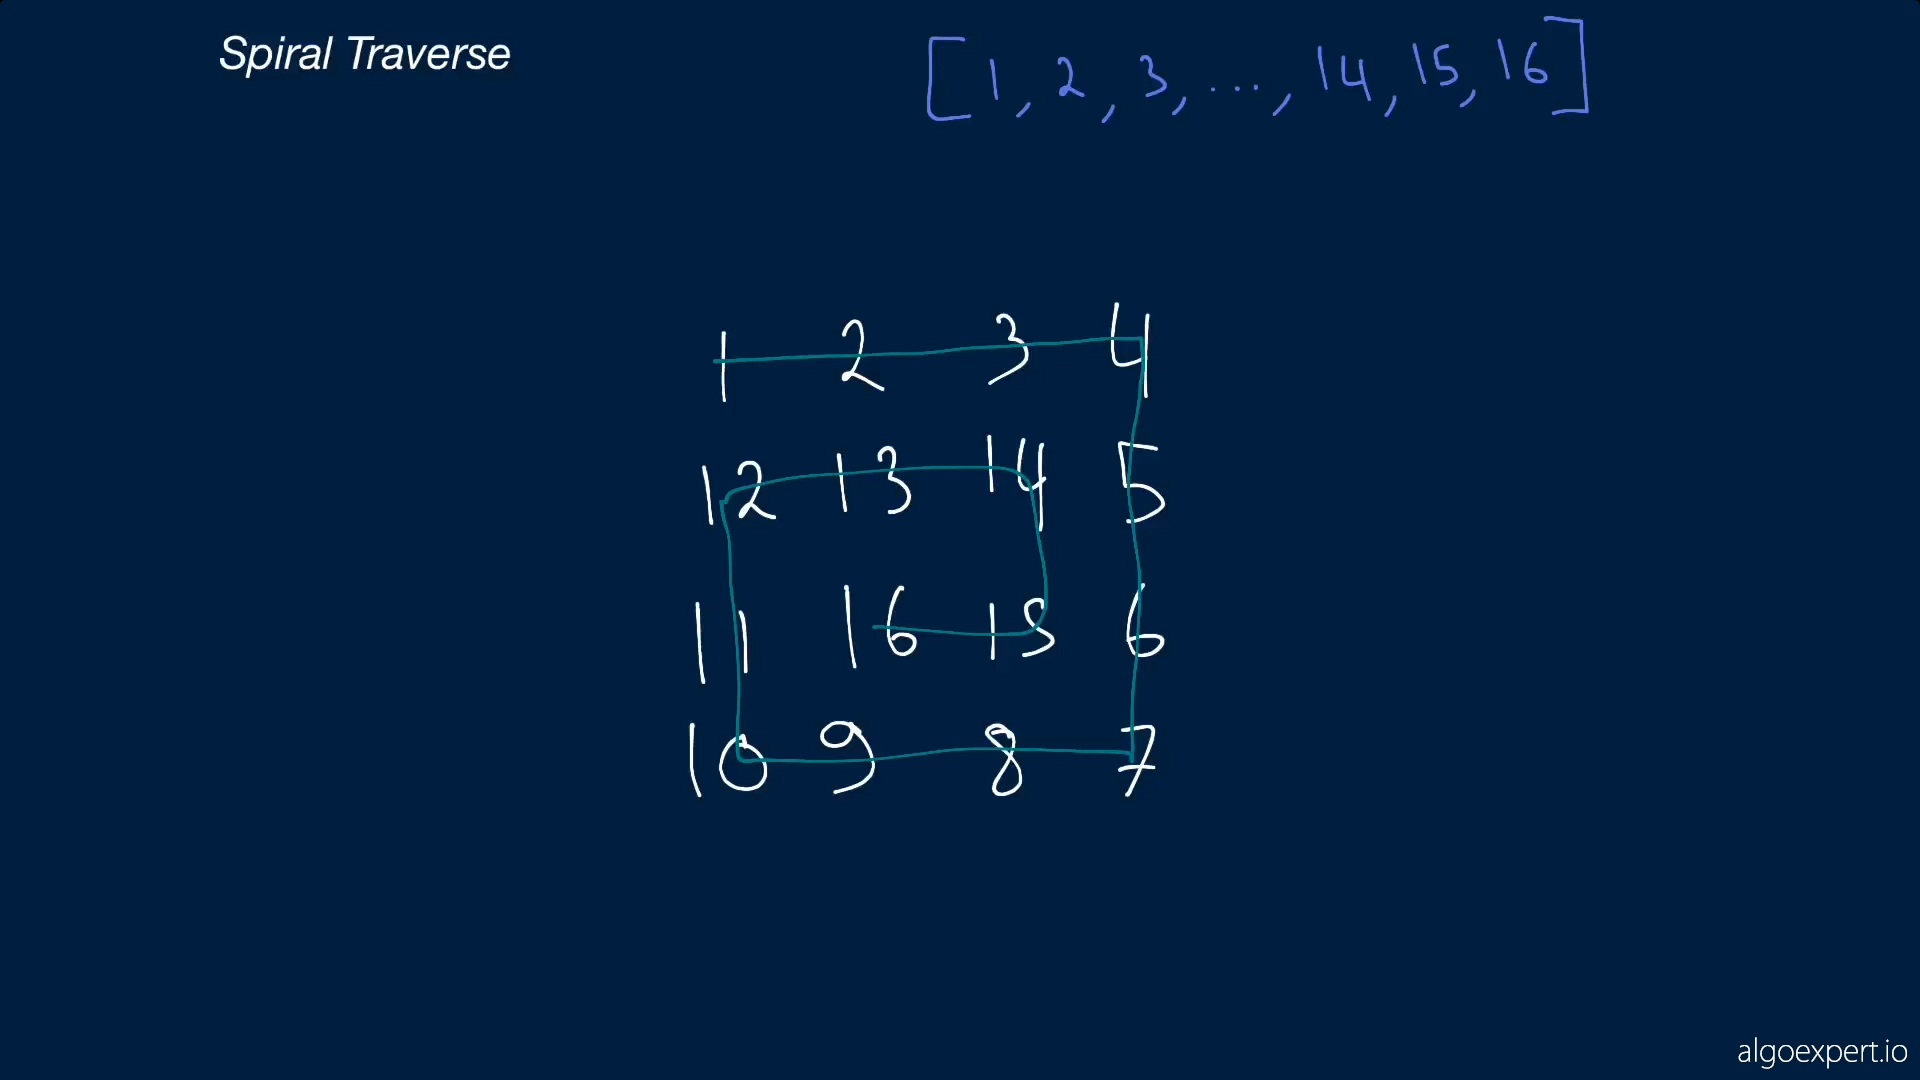 Spiral Traverse
[1, 2, 3, ..., 14, 15, 16]
1 2 3 4
12 13 14 5
11 16 15 6
10 9 8 7
algoexpert.io